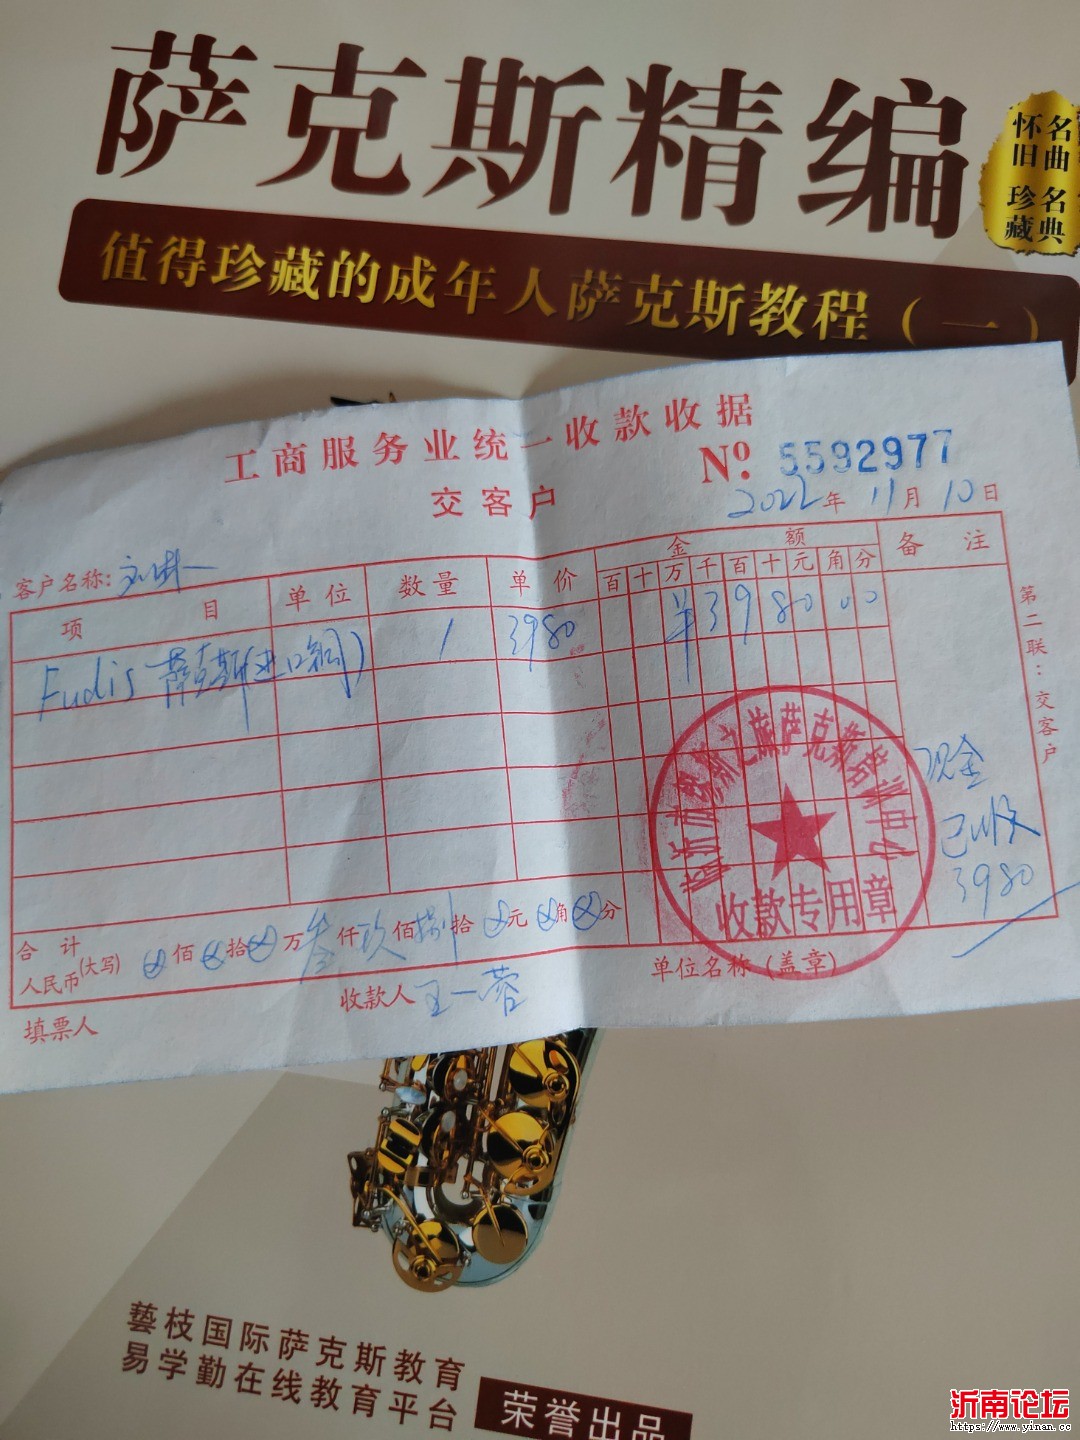 萨克斯精编
怀旧 名曲
珍藏 名典
值得珍藏的成年人萨克斯教程（一）
工商服务业统一收款收据
№: 5592977
交客户
2022年 11月 10日
客户名称:
项目 单位 数量 单价 金额 备注
百 十 万 千 百 十 元 角 分
Fudis 萨克斯(进口铜) 1 3980 ¥ 3 9 8 0 0 0
第二联：交客户
现金
已收
3980
收款专用章
合计
人民币(大写) ⊗佰⊗拾⊗万叁仟玖佰捌拾⊗元⊗角⊗分
单位名称（盖章）
填票人
收款人 王一蓉
藝枝国际萨克斯教育
易学勤在线教育平台
荣誉出品
沂南论坛
https://www.yinan.cc